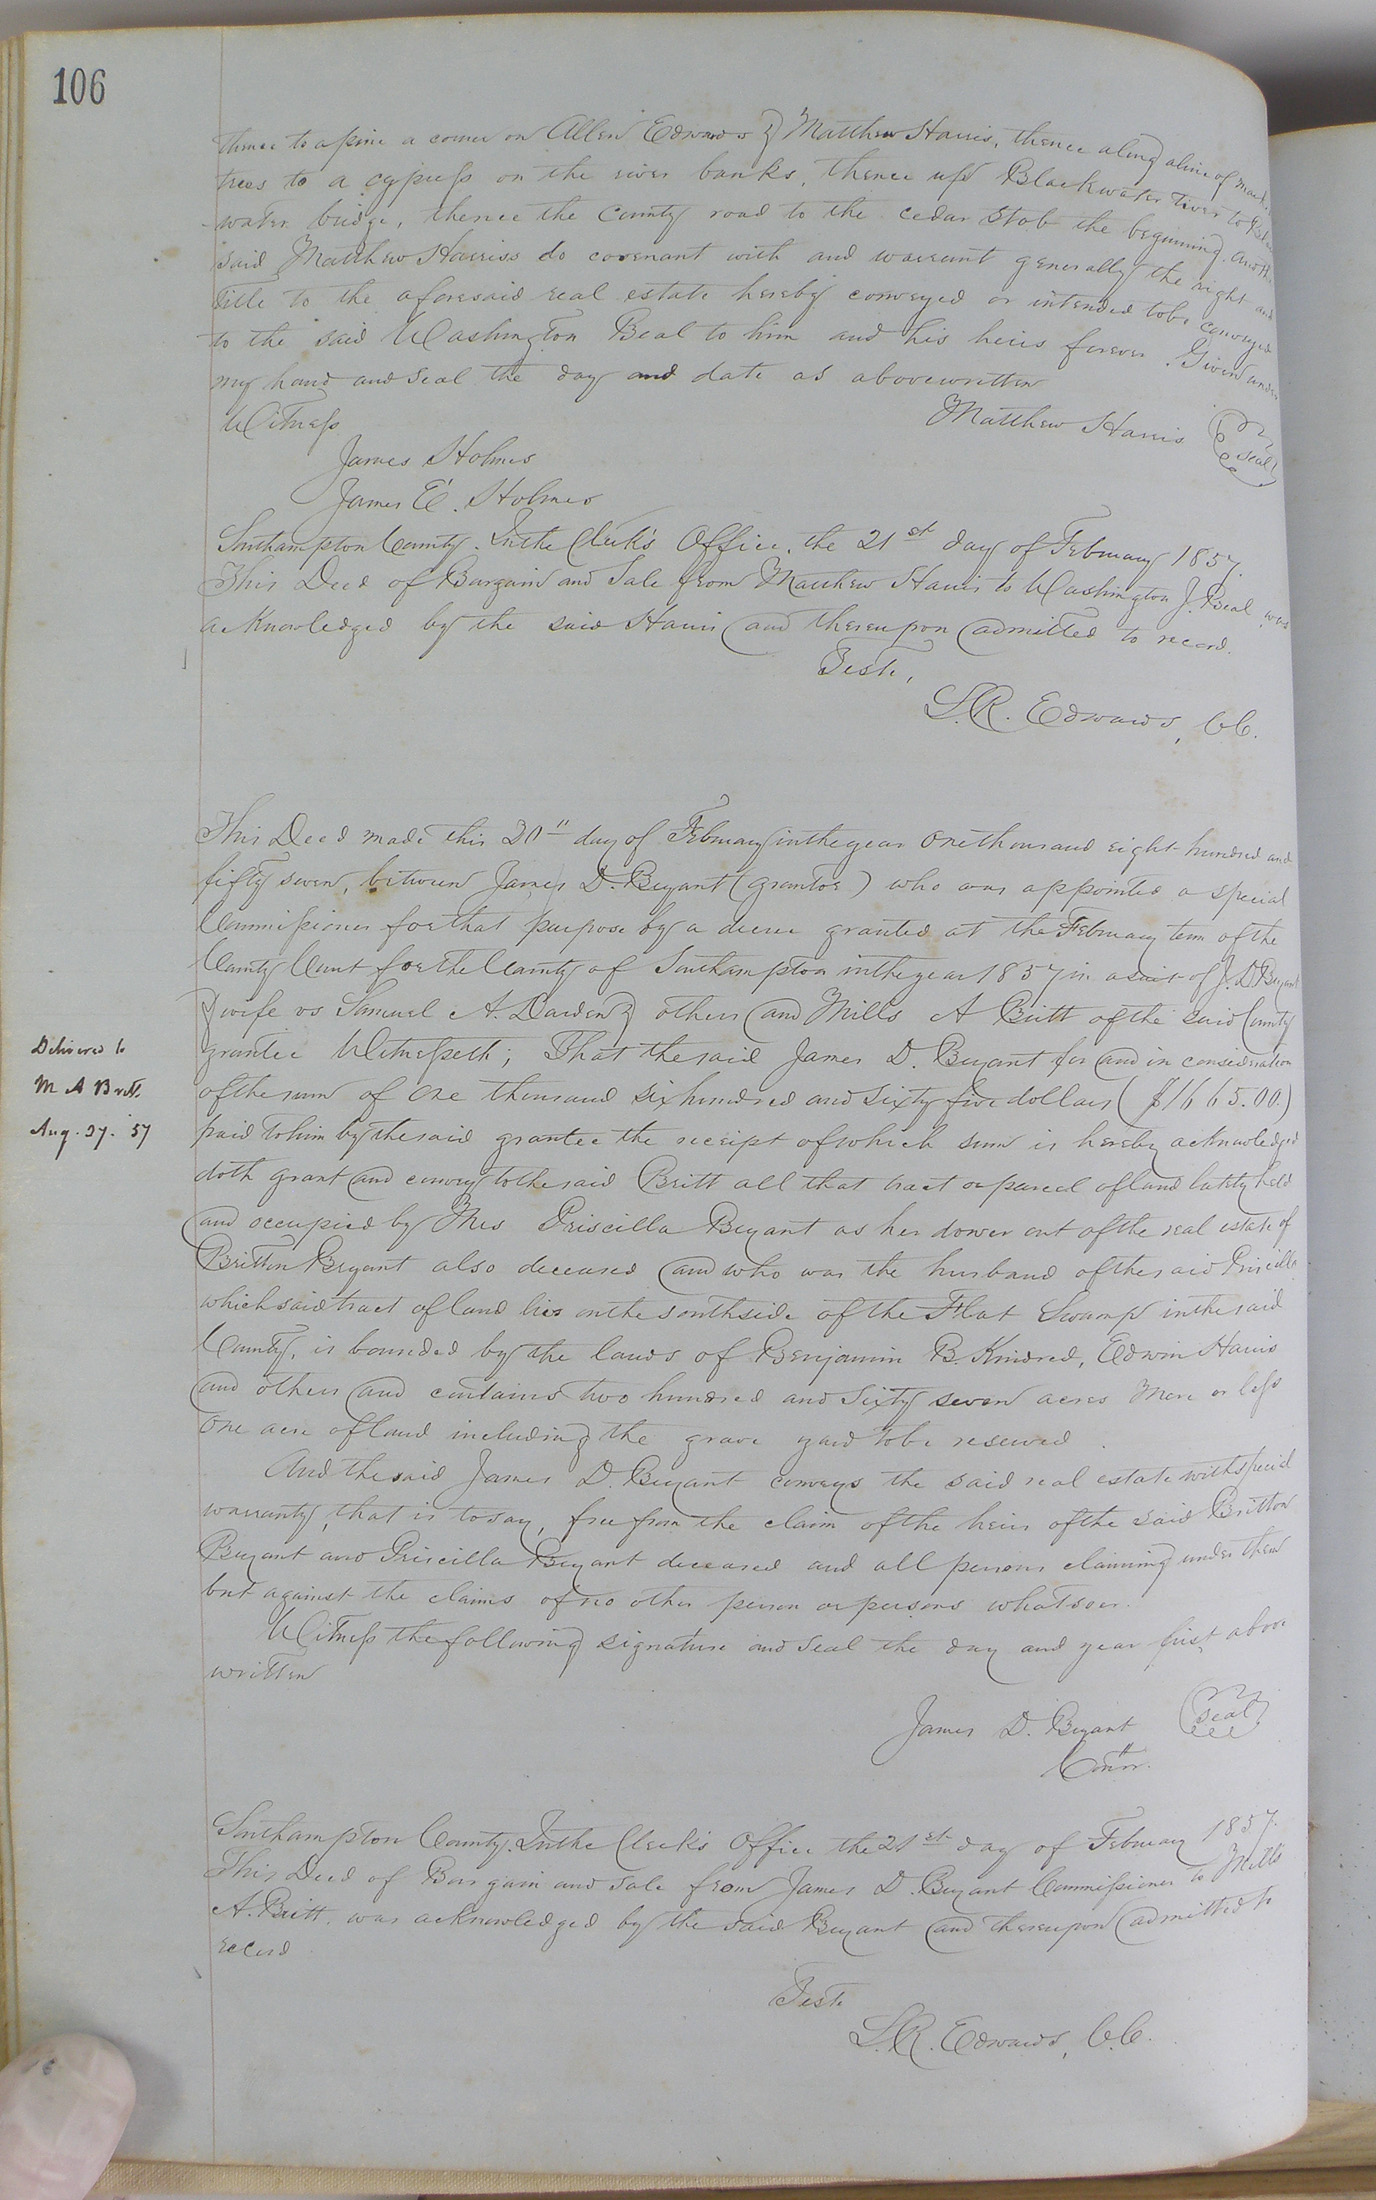 106
thence to a pine a corner on Allen Edwards & Matthew Harris, thence along a line of
trees to a cypress on the river banks, thence up Blackwater River to
water bridge, thence the County road to the cedar Stob the beginning.
said Matthew Harriss do covenant with and warrant generally the right and
title to the aforesaid real estate hereby conveyed or intended to be conveyed
to the said Washington Beal to him and his heirs forever. Given under
my hand and seal the day and date as above written
Witness
Matthew Harris seal
James Holmes
James E. Holmes
Southampton County. In the Clerk's Office, the 21st day of February 1857.
This Deed of Bargain and Sale from Matthew Harris to Washington J. Beal was
acknowledged by the said Harris and thereupon admitted to record.
Teste,
L. R. Edwards, C.C.
This Deed made this 20" day of February in the year one thousand eight hundred and
fifty seven, between James D. Bryant (grantor) who was appointed a special
Commissioner for that purpose by a decree granted at the February term of the
County Court for the County of Southampton in the year 1857 in a suit of J. D. Bryant
& wife vs Samuel A. Darden & others and Mills A Britt of the said County
grantee Witnesseth; That the said James D. Bryant for and in consideration
of the sum of one thousand six hundred and sixty five dollars ($1665.00.)
paid to him by the said grantee the receipt of which sum is hereby acknowledged
doth grant and convey to the said Britt all that tract or parcel of land lately held
and occupied by Mrs Priscilla Bryant as her dower out of the real estate of
Britton Bryant also deceased and who was the husband of the said Priscilla
which said tract of land lies on the south side of the Flat Swamp in the said
County, is bounded by the lands of Benjamin B. Kindred, Edwin Harris
and others and contains two hundred and sixty seven acres more or less
one acre of land including the grave yard to be reserved.
And the said James D. Bryant conveys the said real estate with special
warranty, that is to say, free from the claim of the heirs of the said Britton
Bryant and Priscilla Bryant deceased and all persons claiming under them
but against the claims of no other person or persons whatsoever.
Witness the following signature and seal the day and year first above
written
James D. Bryant seal
Comr.
Delivered to
M A Britt
Aug. 27. '57
Southampton County. In the Clerk's Office the 21st day of February 1857.
This Deed of Bargain and sale from James D. Bryant Commissioner to Mills
A. Britt. was acknowledged by the said Bryant and thereupon admitted to
record
Teste
L. R. Edwards, C.C.